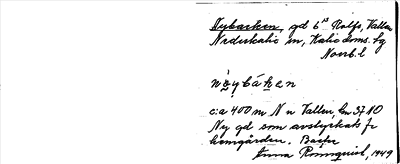 Nybacken, gd 6¹⁵ Rolfs, Vallen
Nederkalix sn, Kalix doms. hg
Norrb. l
c:a 400 m N n Vallen, bn 37 NO
Ny gd som avstyckats fr
hemgården. Backe
Anna Rönnqvist, 1949